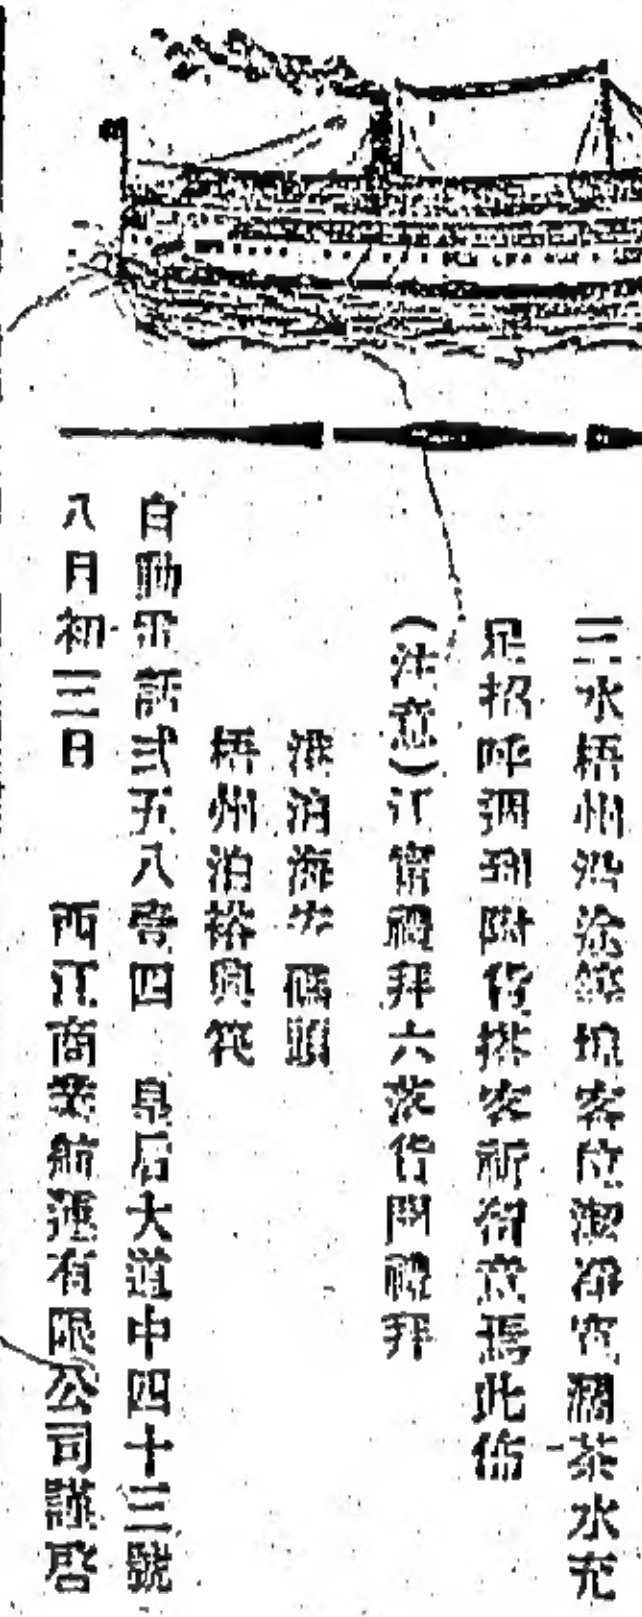 三水梧州沿途經埠客位潔淨寬濶茶水充
足招呼週到附貨搭客祈留意焉此佈
(注意)江寗禮拜六落貨開禮拜
港泊海安碼頭
梧州泊裕興筏
自動電話弍五八壹四 皇后大道中四十三號
八月初三日 西江商業航運有限公司謹啓